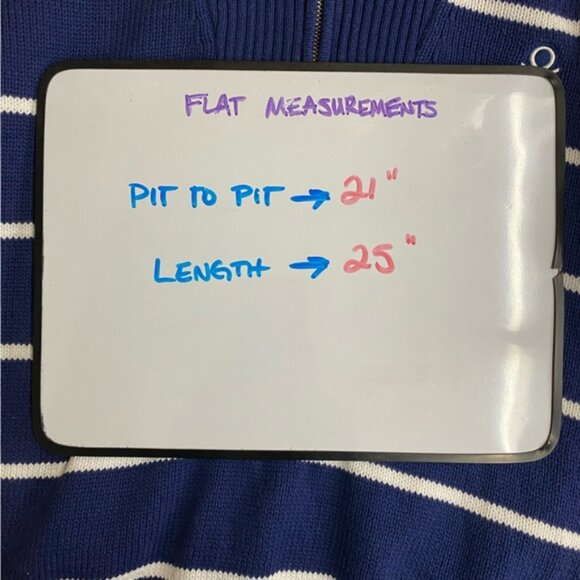 FLAT MEASUREMENTS
PIT TO PIT → 21"
LENGTH → 25"